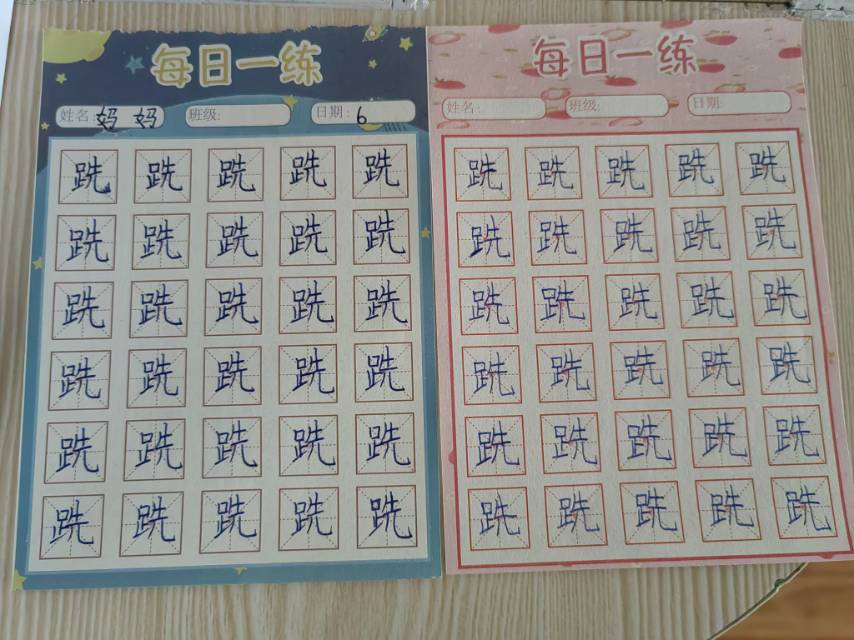 每日一练
姓名:妈妈 班级: 日期:6
跣 跣 跣 跣 跣
跣 跣 跣 跣 跣
跣 跣 跣 跣 跣
跣 跣 跣 跣 跣
跣 跣 跣 跣 跣
跣 跣 跣 跣 跣
每日一练
姓名: 班级: 日期:
跣 跣 跣 跣 跣
跣 跣 跣 跣 跣
跣 跣 跣 跣 跣
跣 跣 跣 跣 跣
跣 跣 跣 跣 跣
跣 跣 跣 跣 跣